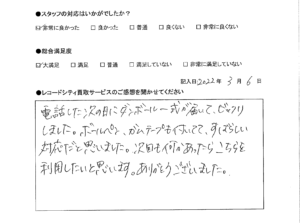 ●スタッフの対応はいかがでしたか?
☑非常に良かった □良かった □普通 □良くない □非常に良くない
●総合満足度
☑大満足 □満足 □普通 □満足していない □非常に満足していない
記入日 2022年 3月 6日
●レコードシティ買取サービスのご感想を聞かせてください
電話した次の日にダンボール一式が届いて、ビックリ
しました。ボールペン、ガムテープも付いてて、すばらしい
対応だと思いました。次回も何かあったらこちらを
利用したいと思います。ありがとうございました。